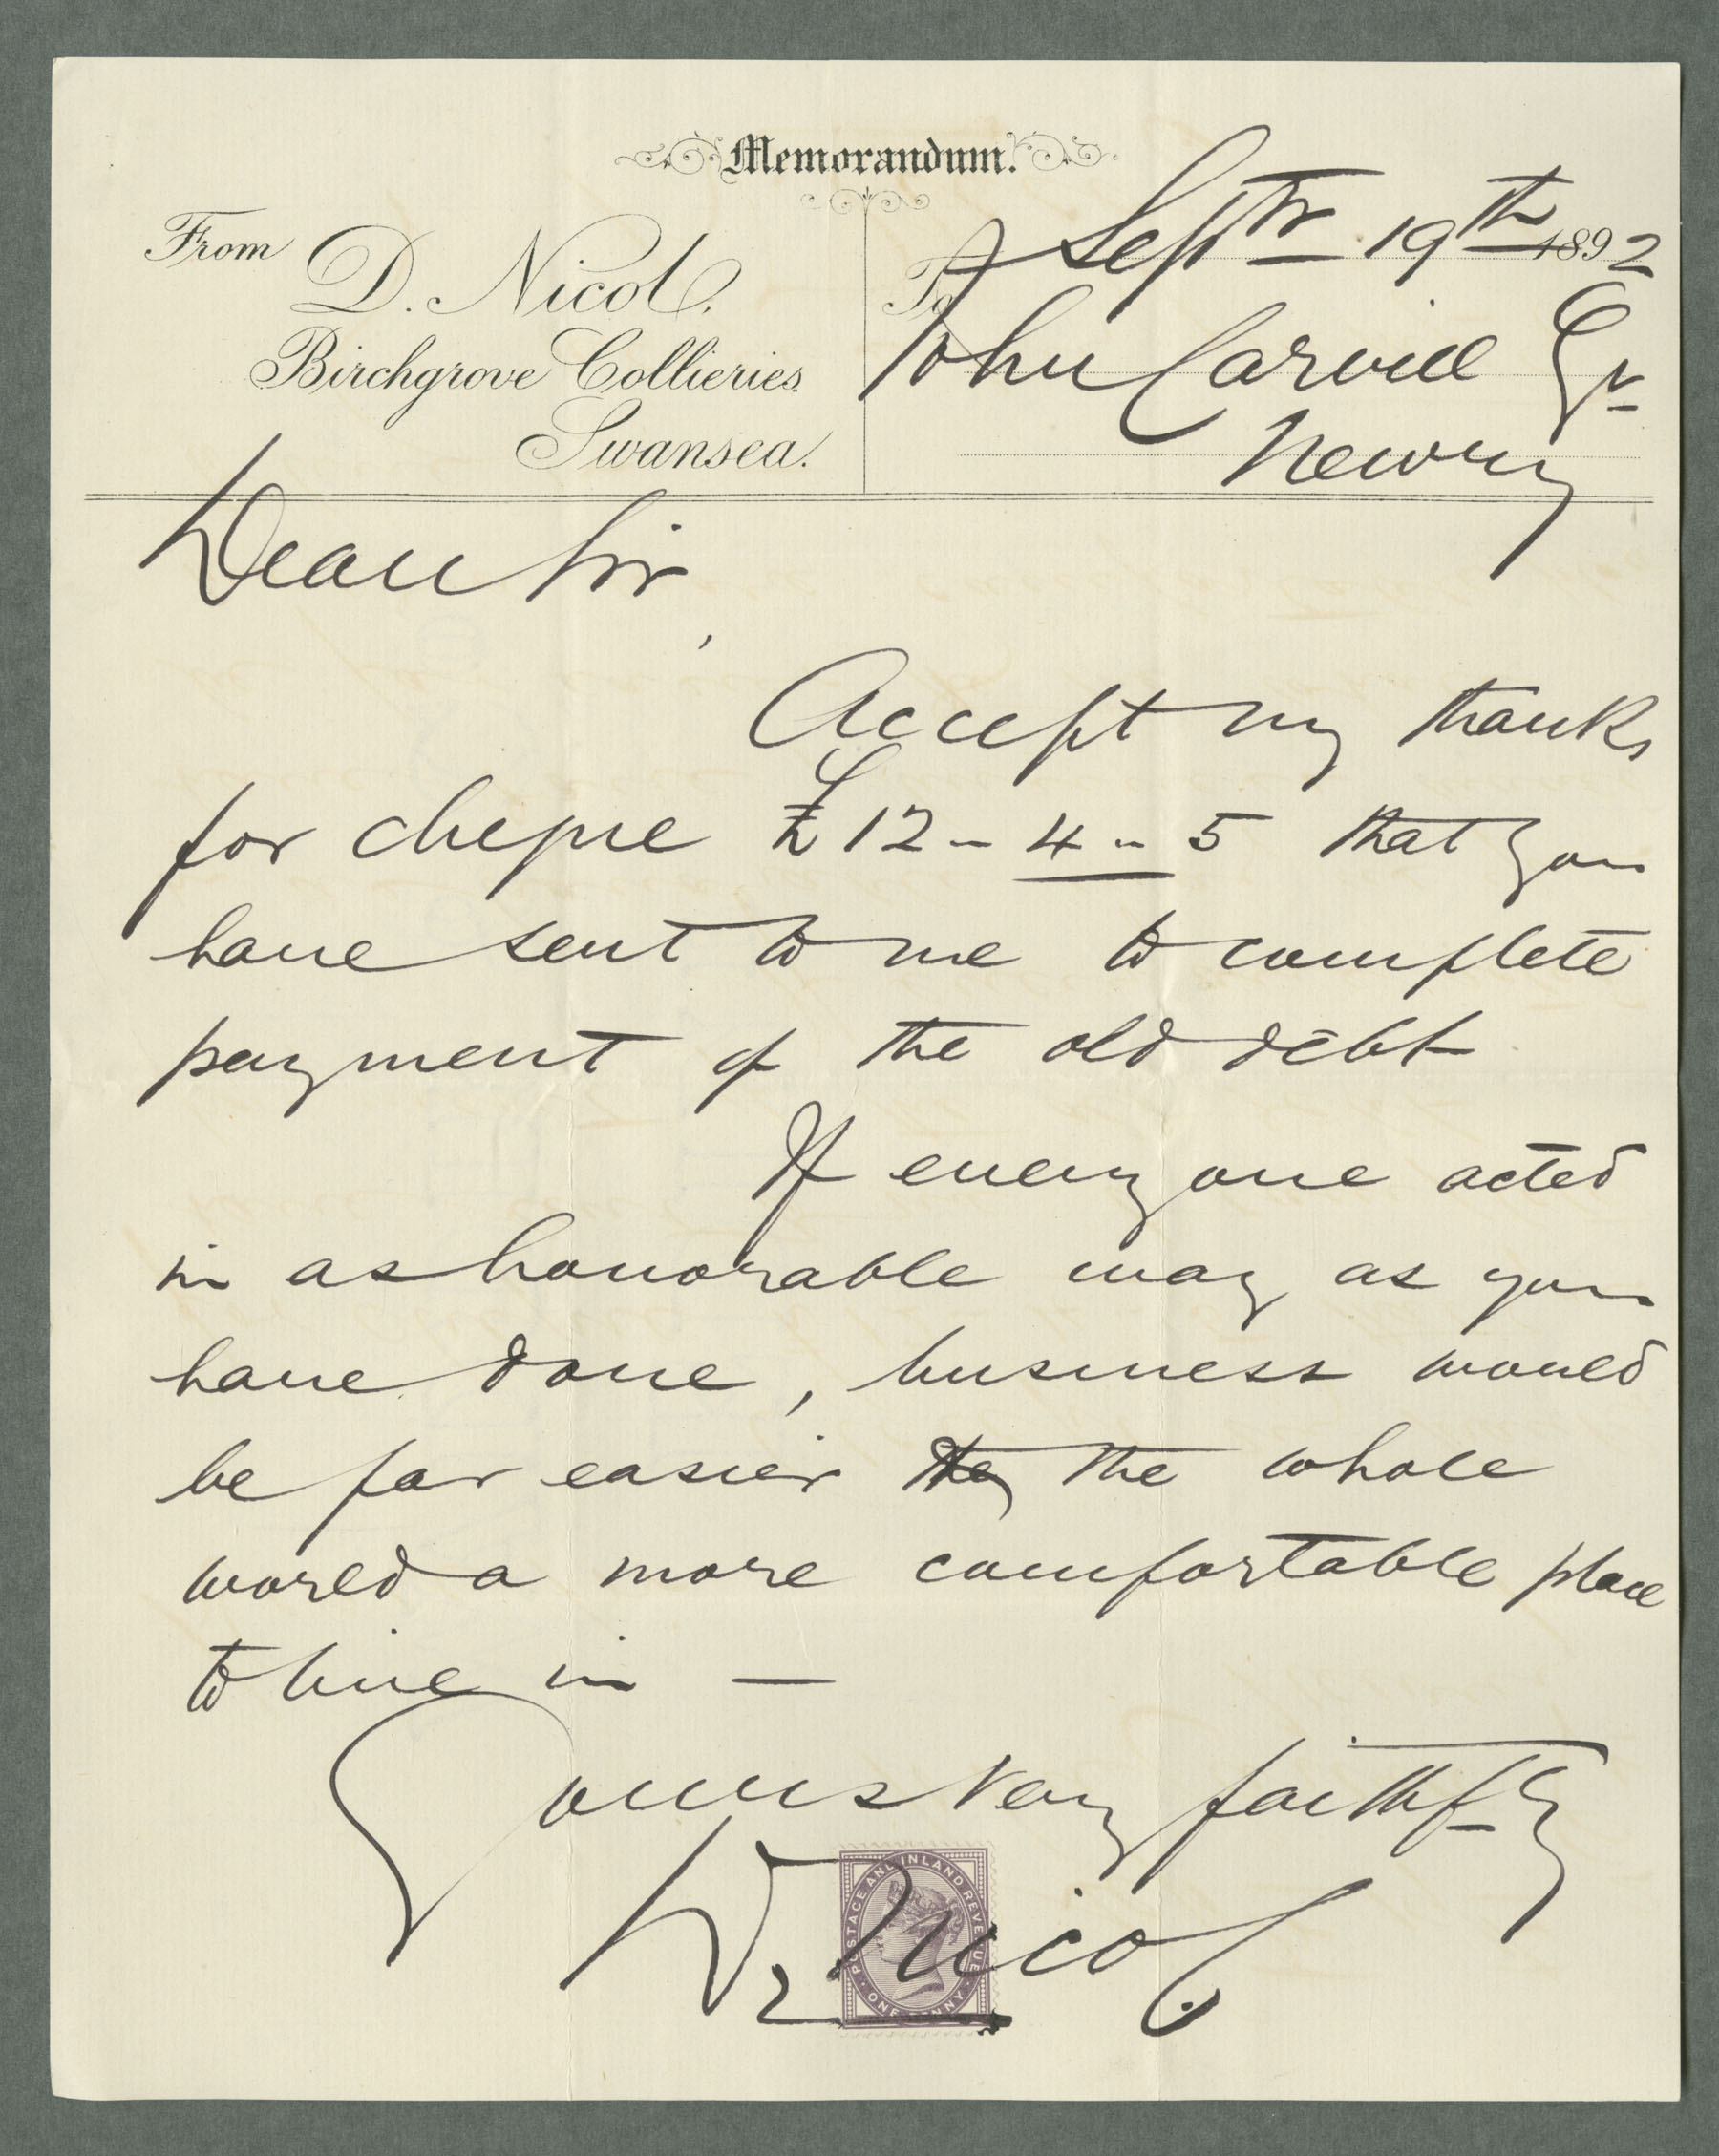 Memorandum.
From
D. Nicol.
Birchgrove Collieries
Swansea.
Septr 19th 1892
To
John Carvill Esqr
Newry
Dear Sir,
Accept my thanks
for cheque £12-4-5 that you
have sent to me to complete
payment of the old debt
If every one acted
in as honorable way as you
have done, business would
be far easier the the whole
world a more comfortable place
to live in —
Yours very faithfly
D. Nicol
POSTAGE AND INLAND REVENUE
ONE PENNY